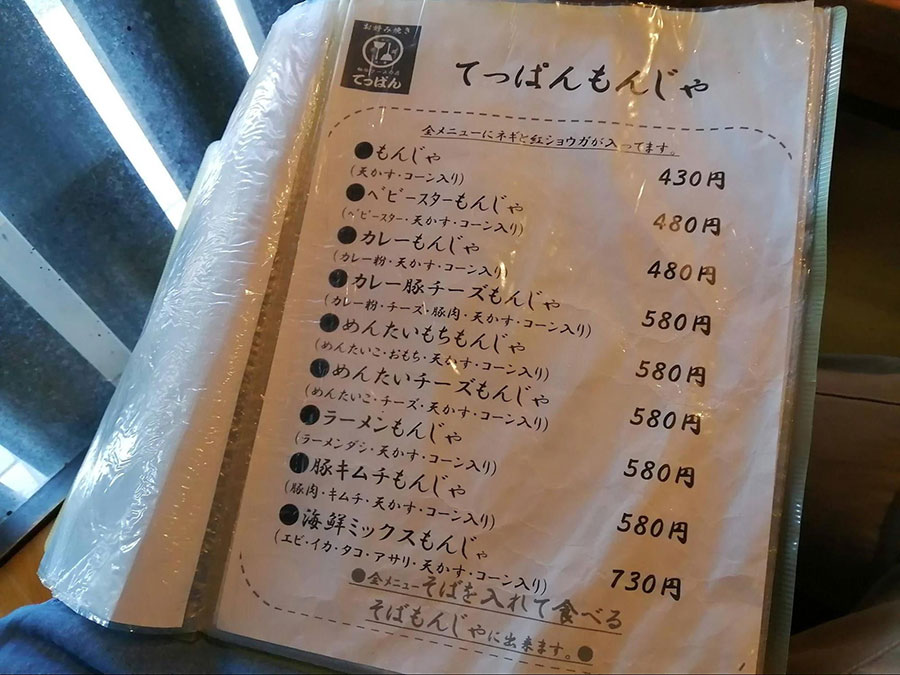 お好み焼き
てっぱん
てっぱんもんじゃ
全メニューにネギと紅ショウガが入ってます。
●もんじゃ 430円
(天かす・コーン入り)
●ベビースターもんじゃ 480円
(ベビースター・天かす・コーン入り)
●カレーもんじゃ 480円
(カレー粉・天かす・コーン入り)
●カレー豚チーズもんじゃ 580円
(カレー粉・チーズ・豚肉・天かす・コーン入り)
●めんたいもちもんじゃ 580円
(めんたいこ・おもち・天かす・コーン入り)
●めんたいチーズもんじゃ 580円
(めんたいこ・チーズ・天かす・コーン入り)
●ラーメンもんじゃ 580円
(ラーメンダシ・天かす・コーン入り)
●豚キムチもんじゃ 580円
(豚肉・キムチ・天かす・コーン入り)
●海鮮ミックスもんじゃ 730円
(エビ・イカ・タコ・アサリ・天かす・コーン入り)
●全メニューそばを入れて食べる
そばもんじゃに出来ます。●